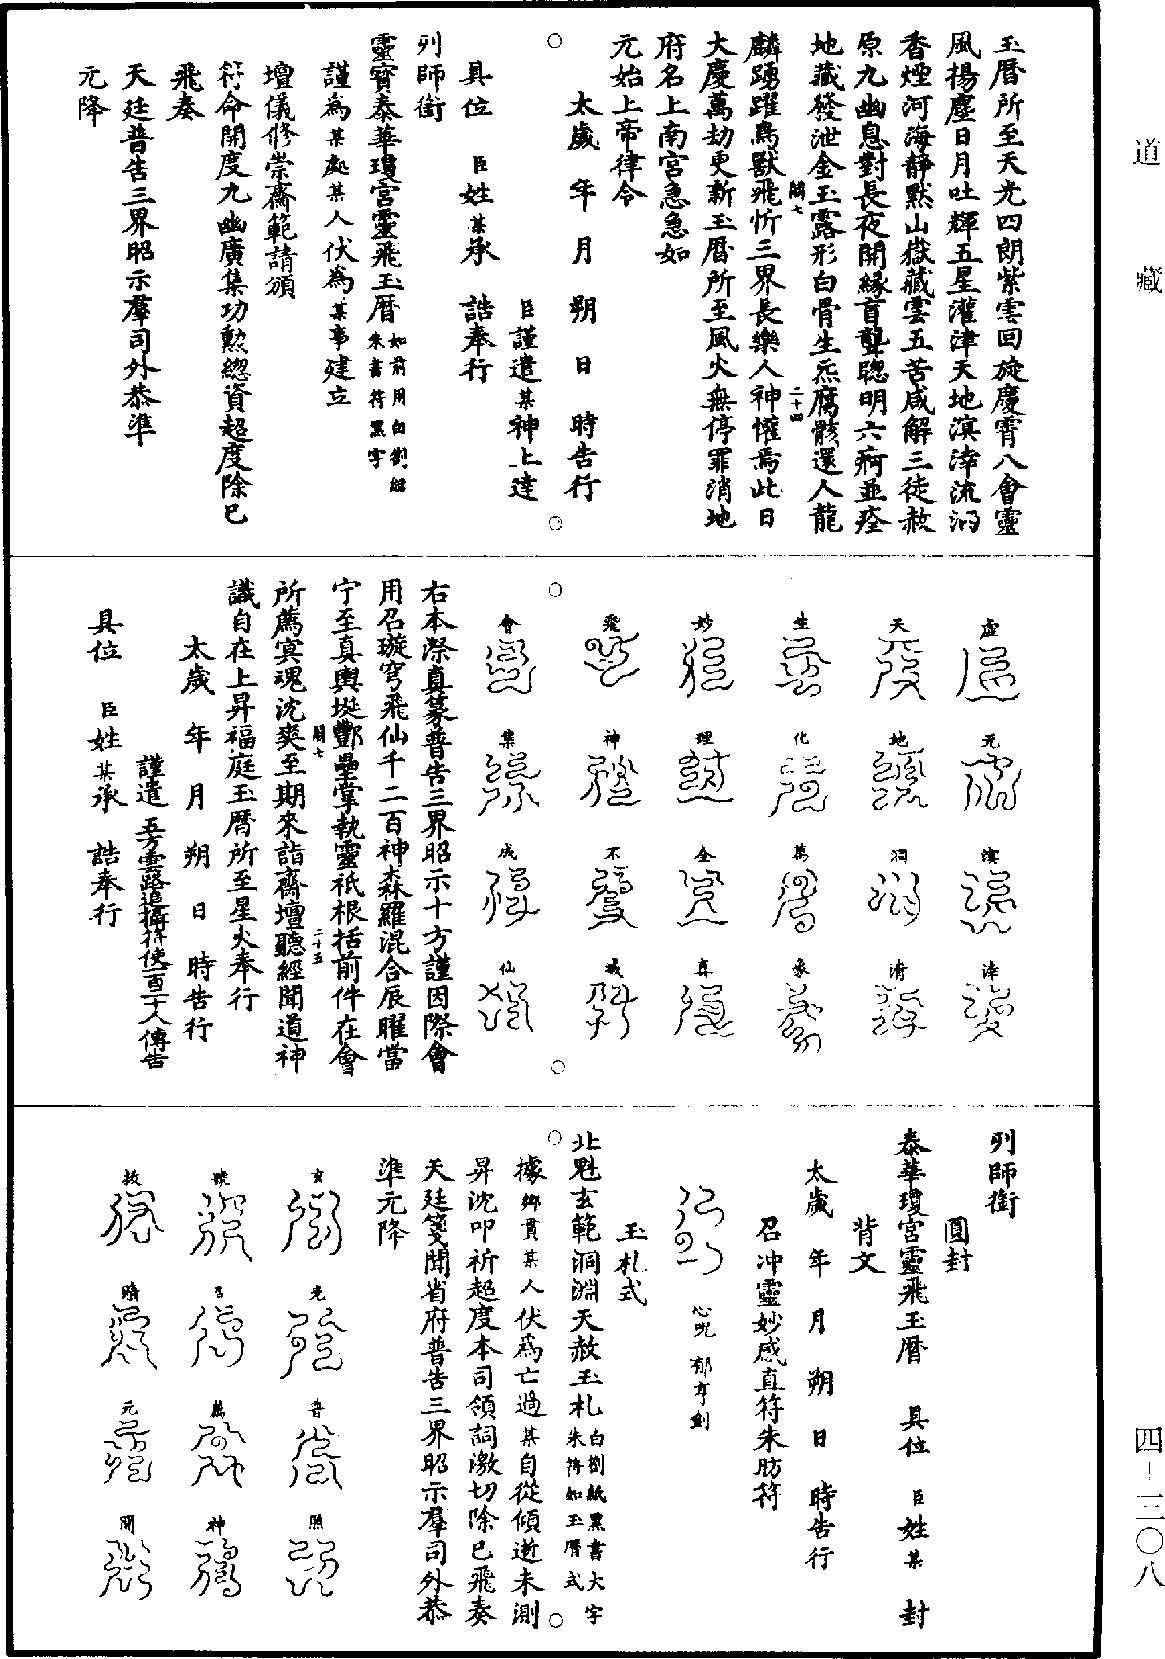 道藏
四—三〇八
玉曆所至天光四朗紫雲回旋慶霄八會靈
風揚塵日月吐輝五星灌津天地溟涬流泗
香煙河海靜默山嶽藏雲五苦咸解三徒赦
原九幽息對長夜開緣盲聾聰明六痾並痊
地藏發泄金玉露形白骨生炁腐骸還人龍
麟踴躍鳥獸飛忻三界長樂人神懽焉此日
大慶萬劫更新玉曆所至風火無停罪消地
府名上南宮急急如
元始上帝律令
太歲 年 月 朔 日 時告行
臣謹遣某神上達
具位 臣姓某承 誥奉行
列師銜
靈寶泰華瓊宮靈飛玉曆如前用白劄紹朱書符黑字
謹為某處某人伏為某事建立
壇儀修崇齋範請頒
符命開度九幽廣集功勲總資超度除已
飛奏
天廷普告三界昭示羣司外恭準
元降
虛 元 溟 涬
天 地 洞 清
生 化 萬 象
妙 理 全 真
飛 神 不 滅
會 集 成 仙
右本際真篆普告三界昭示十方謹因際會
用召璇穹飛仙千二百神森羅混合辰曜當
宁至真輿埏酆壘掌執靈祇根括前件在會
所薦冥魂沈爽至期來詣齋壇聽經聞道神
識自在上昇福庭玉曆所至星火奉行
太歲 年 月 朔 日 時告行
謹遣五方雲路追攝符使一百二十人傳告
具位 臣姓某承 誥奉行
列師銜
圓封
泰華瓊宮靈飛玉曆 具位 臣姓某 封
背文
太歲 年 月 朔 日 時告行
召冲靈妙感直符朱肪符
心呪 郁亨劍
玉札式
北魁玄範洞淵天赦玉札白劄紙黑書大字朱符如玉曆式
據鄉貫某人伏為亡過某自從傾逝未測
昇沈叩祈超度本司領詞激切除已飛奏
天廷箋聞省府普告三界昭示羣司外恭
準元降
玄 光 普 照
晓 名 薦 神
赦 晴 元 開
關七
二十四
關七
二十五